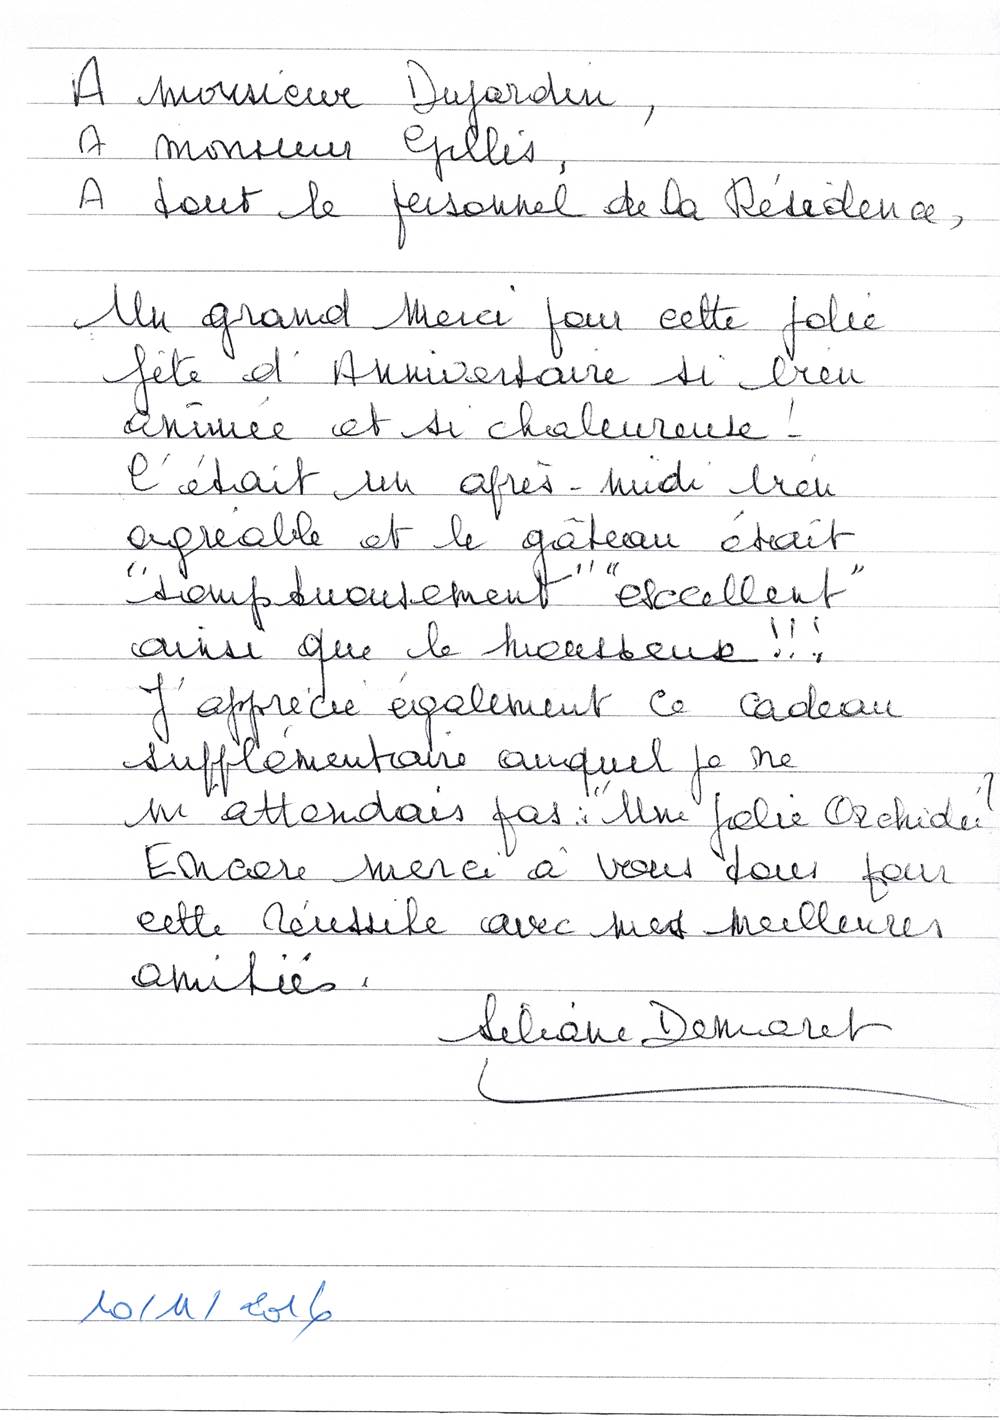 A monsieur Dujardin,
A monsieur Gillis,
A tout le personnel de la Résidence,
Un grand Merci pour cette jolie
fête d'Anniversaire si bien
animée et si chaleureuse !
C'était un après-midi bien
agréable et le gâteau était
"somptueusement" "excellent"
ainsi que le mousseux !!!
J'apprécie également ce cadeau
supplémentaire auquel je ne
m'attendais pas : "Une jolie Orchidée"
Encore merci à vous tous pour
cette réussite avec mes meilleures
amitiés.
Liliane Demaret
10/11/2016